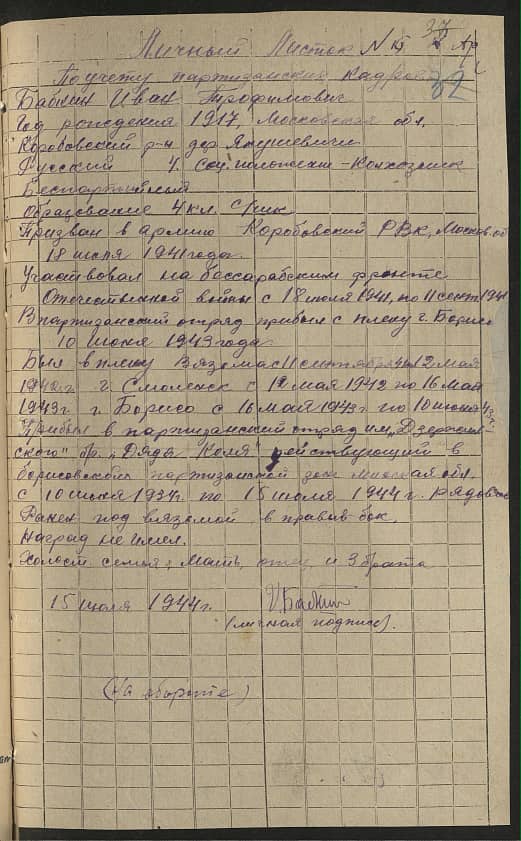 37
Личный Листок N
По учету партизанских кадров
32
Бабкин Иван Трофимович
Год рождения 1917, Московская обл.
Коробовский р-н дер. Якушевичи
Русский 4. Соц. положение - Колхозник
Беспартийный
Образование 4 кл.
Призван в армию Коробовский РВК, Москов. об
18 июля 1941 года.
Участвовал на бессарабским фронте
Отечественной войны с 18 июля 1941, по 11 сент 1941
В партизанский отряд прибыл с плену г. Борисо
10 июня 1943 года.
Был в плену Вязема с 11 сентября 41 по 12 мая
1942 г. г. Смоленск с 12 мая 1942 по 16 мая
1943 г г. Борисо с 16 май 1943 г по 10 июня
Прибыл в партизанский отряд им. „Дзержин
ского" бр. „Дяди Коля" действующий в
борисовской партизанской зон минская обл.
с 10 июня 1934 г. по 15 июля 1944 г. рядовой
Ранен под вяземой в правый бок.
Наград не имел.
Холост семья: Мать, отец и 3 брата
15 июля 1944 г.
(личная подпись).
(На обороте)